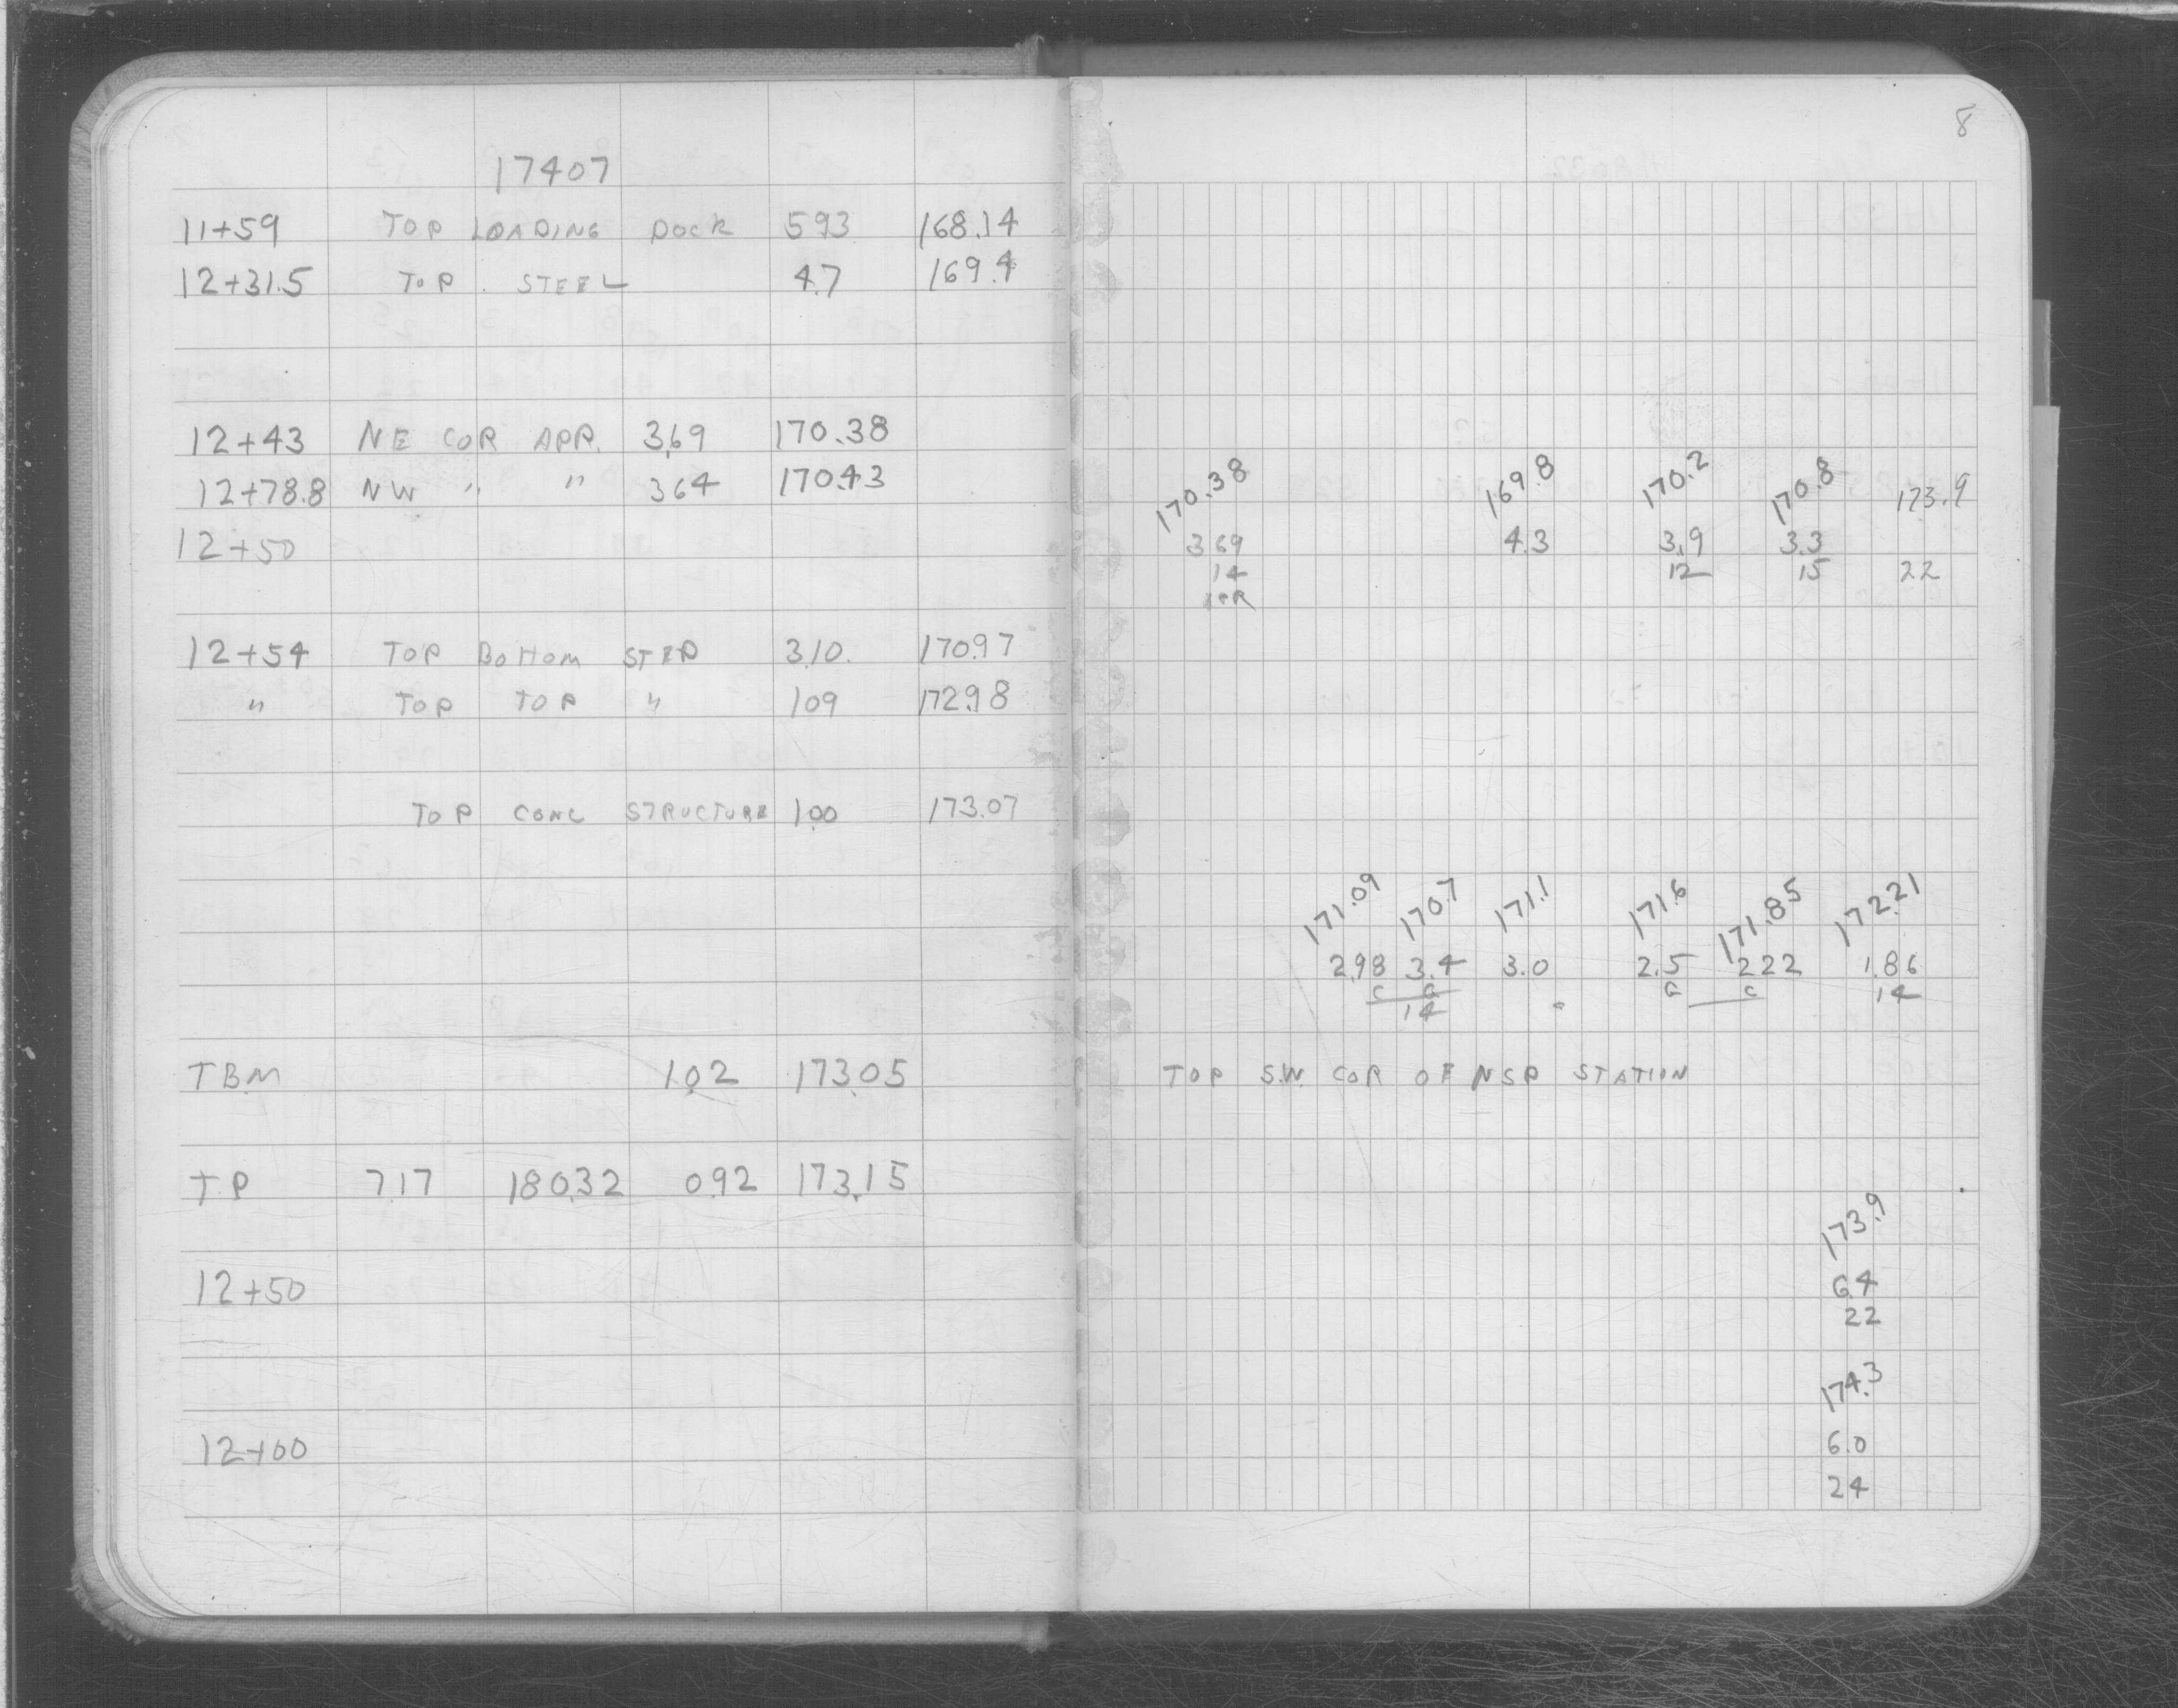 8
17407
11+59 TOP LOADING DOCK 593 168.14
12+31.5 TOP STEEL 4.7 169.4
12+43 NE COR APR. 3.69 170.38
12+78.8 NW " " 364 170.43
12+50
170.38 169.8 170.2 170.8 173.9
369 4.3 3.9 3.3
14 12 15 22
COR
12+54 TOP BOTTOM STEP 3.10. 170.97
" TOP TOP " 109 172.98
TOP CONC STRUCTURE 1.00 173.07
171.09 170.7 171.1 171.6 171.85 172.21
2.98 3.4 3.0 2.5 222 1.86
C G G C 14
14
TBM 1.02 173.05 TOP S.W. COR OF NSP STATION
TP 7.17 180.32 092 173.15
173.9
12+50 6.4
22
174.3
12+00 6.0
24